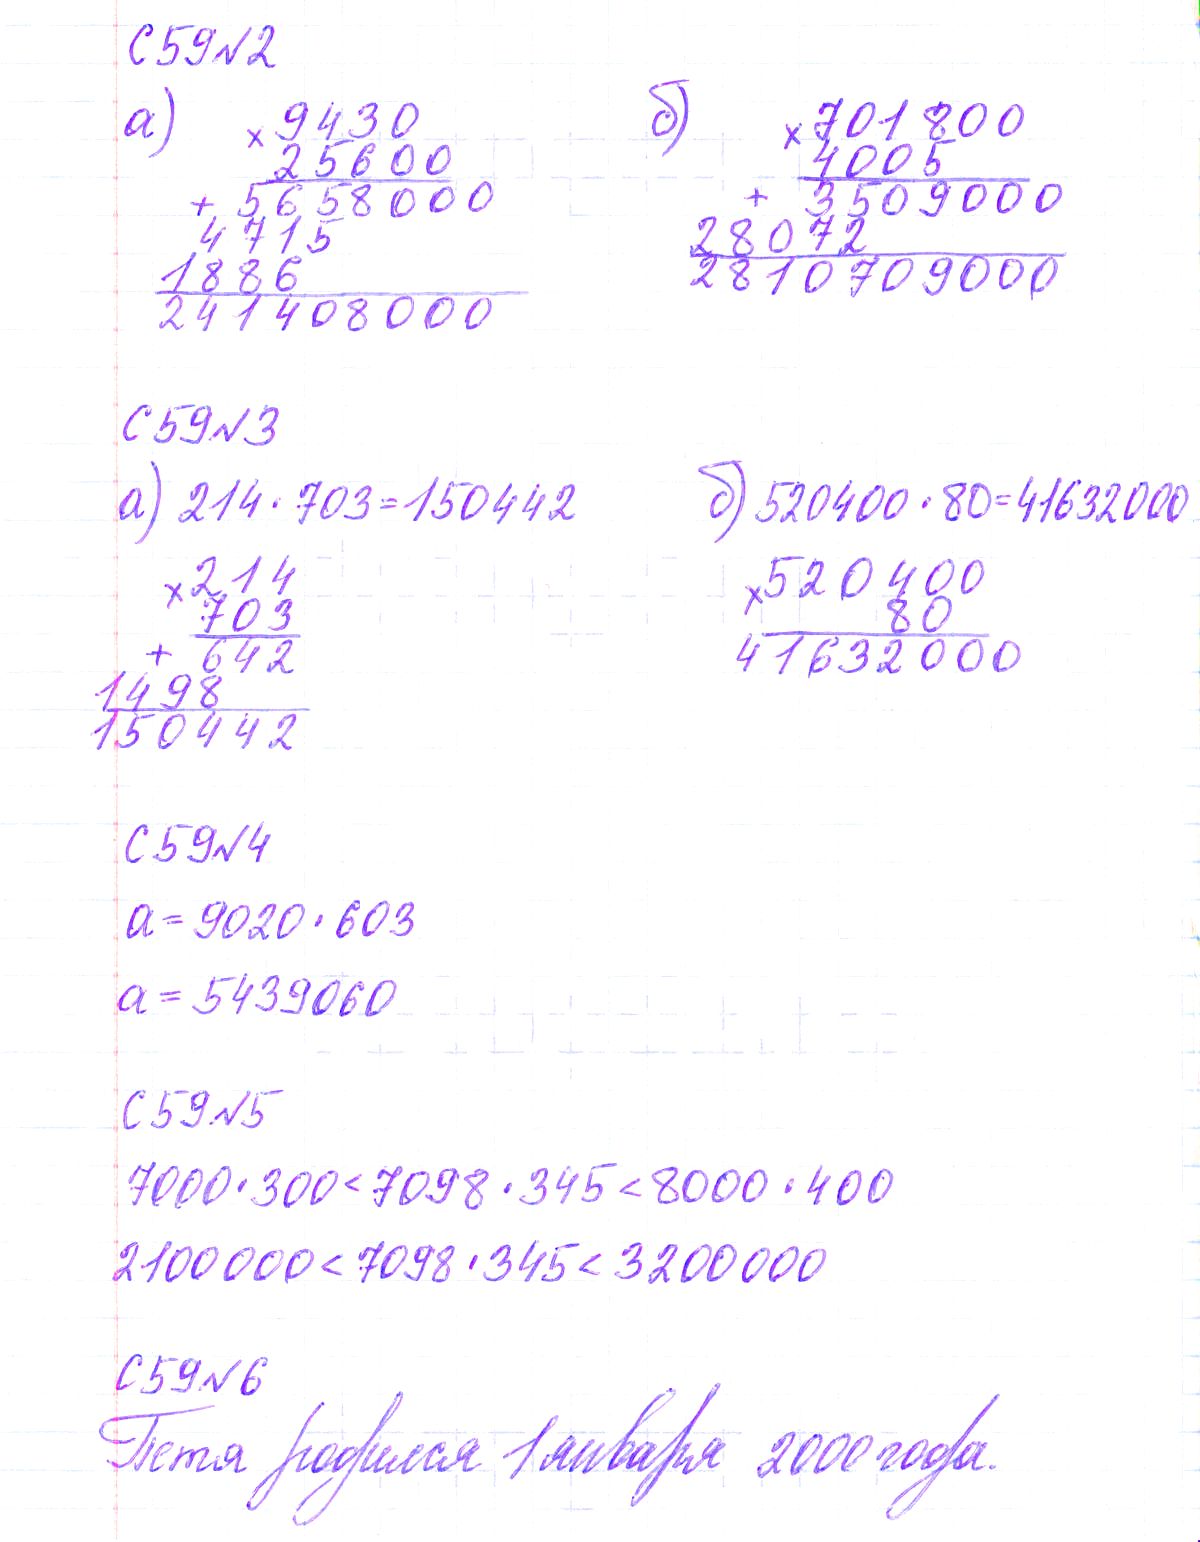 С59№2
а) × 9430
25600
+ 5658000
4715
1886
241408000
б) × 701800
4005
+ 3509000
28072
2810709000
С59№3
а) 214·703=150442
× 214
703
+ 642
1498
150442
б) 520400·80=41632000
× 520400
80
41632000
С59№4
а=9020·603
а=5439060
С59№5
7000·300<7098·345<8000·400
2100000<7098·345<3200000
С59№6
Петя родился 1 января 2000 года.